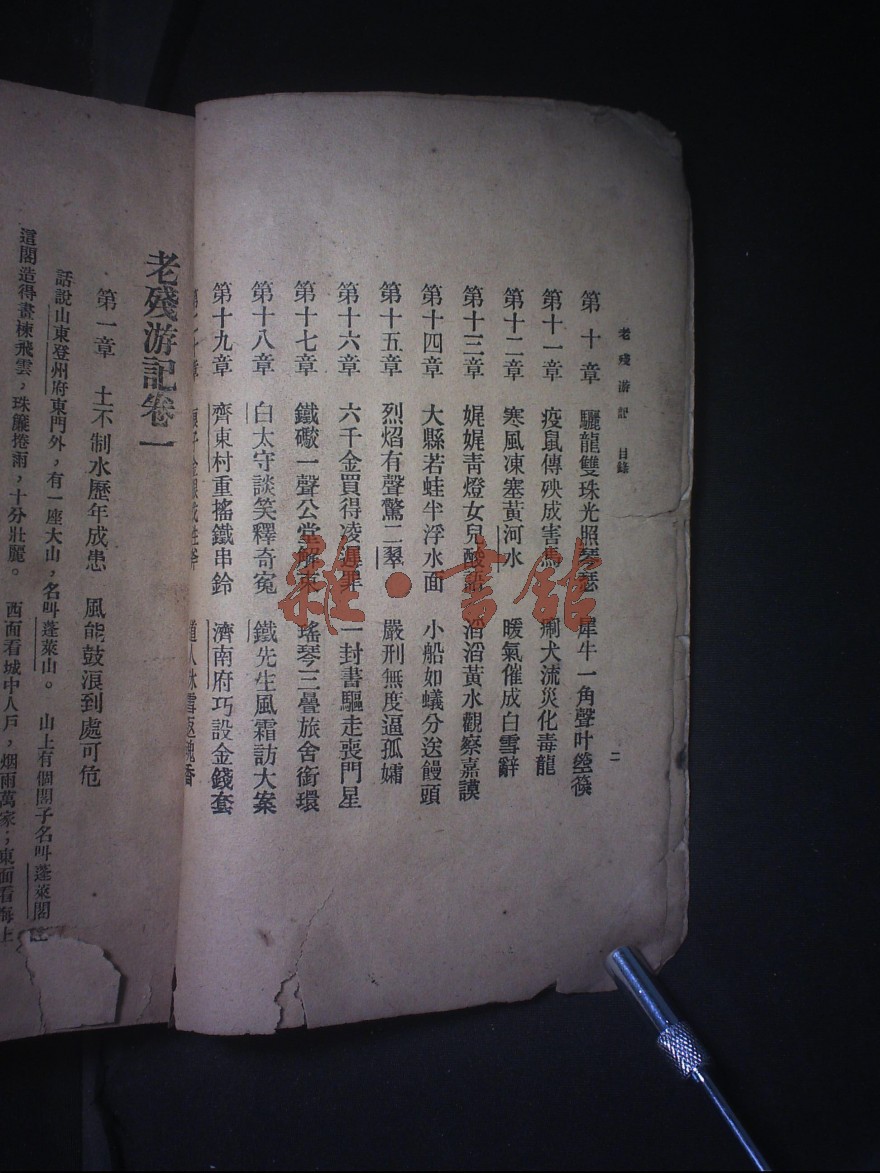 老殘游記 目錄
二
第十章 驪龍雙珠光照琴瑟 犀牛一角聲叶箜篌
第十一章 疫鼠傳殃成害馬 瘈犬流災化毒龍
第十二章 寒風凍塞黃河水 暖氣催成白雪辭
第十三章 娓娓靑燈女兒酸語 滔滔黃水觀察嘉謨
第十四章 大縣若蛙半浮水面 小船如蟻分送饅頭
第十五章 烈焰有聲驚二翠 嚴刑無度逼孤孀
第十六章 六千金買得凌遲罪 一封書驅走喪門星
第十七章 鐵礮一聲公堂解東 瑤琴三疊旅舍銜環
第十八章 白太守談笑釋奇冤 鐵先生風霜訪大案
第十九章 齊東村重搖鐵串鈴 濟南府巧設金錢套
老殘游記卷一
第一章 土不制水歷年成患 風能鼓浪到處可危
話說山東登州府東門外，有一座大山，名叫蓬萊山。山上有個閣子名叫蓬萊閣
這閣造得畫棟飛雲，珠簾捲雨，十分壯麗。西面看城中人戶，烟雨萬家；東面看海上
雜·書館